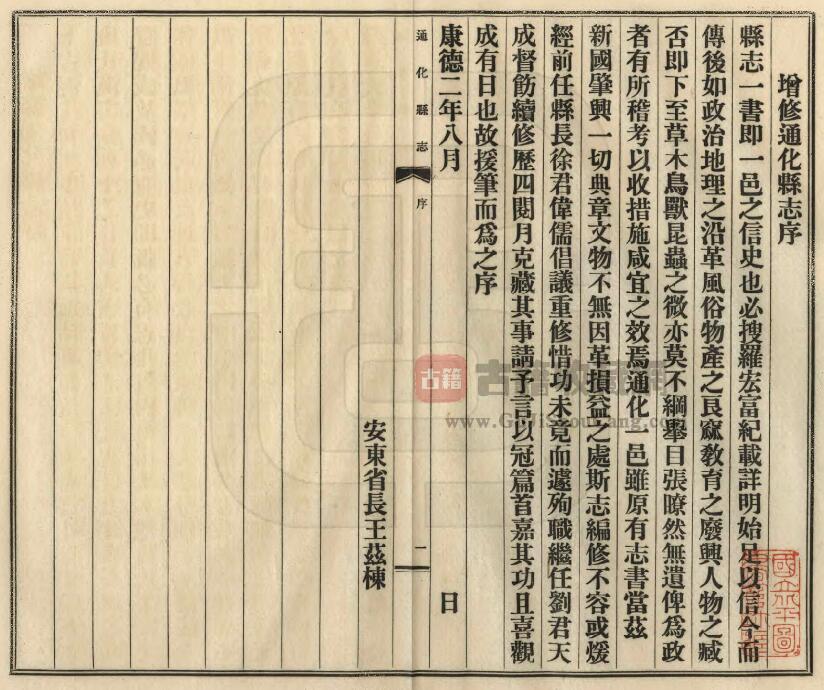 增修通化縣志序
縣志一書即一邑之信史也必搜羅宏富紀載詳明始足以信今而
傳後如政治地理之沿革風俗物產之良窳敎育之廢興人物之臧
否即下至草木鳥獸昆蟲之微亦莫不綱舉目張瞭然無遺俾爲政
者有所稽考以收措施咸宜之效焉通化一邑雖原有志書當茲
新國肇興一切典章文物不無因革損益之處斯志編修不容或煖
經前任縣長徐君偉儒倡議重修惜功未竟而遽殉職繼任劉君天
成督飭續修歷四閱月克蕆其事請予言以冠篇首嘉其功且喜觀
成有日也故援筆而爲之序
康德二年八月 日
通化縣志 序 一
安東省長王茲棟
古籍
www.GuJiShouCang.com